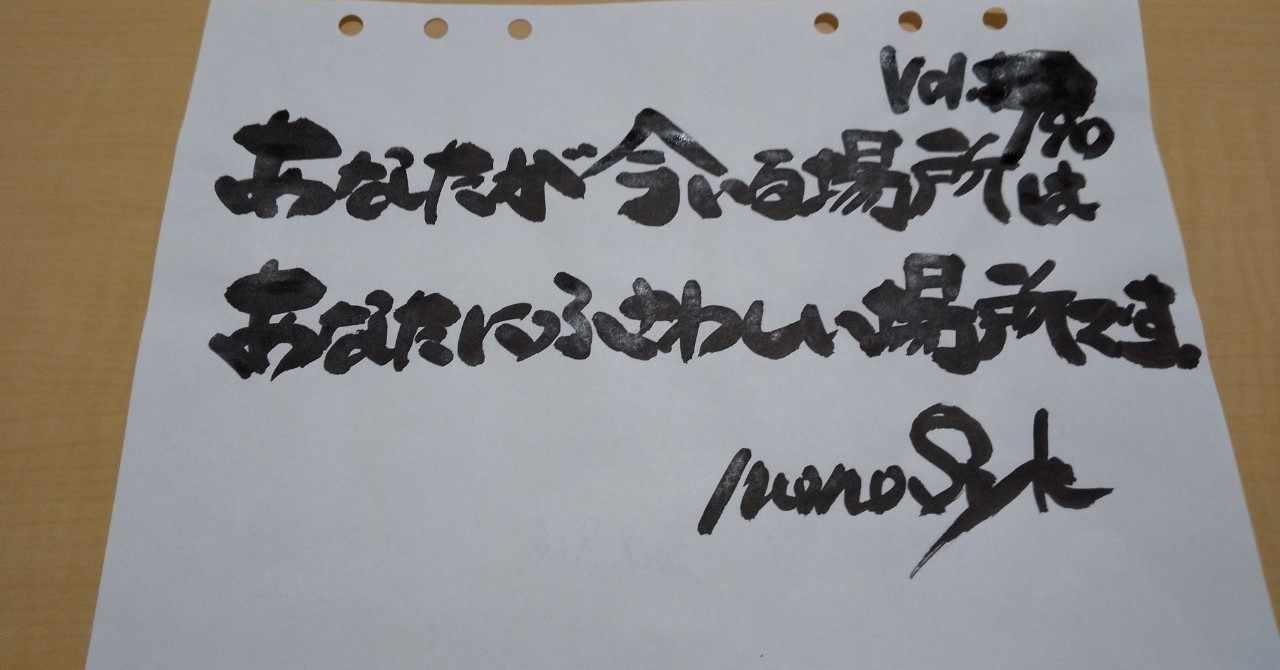 Vol.190
あなたが今いる場所は
あなたにふさわしい場所です。